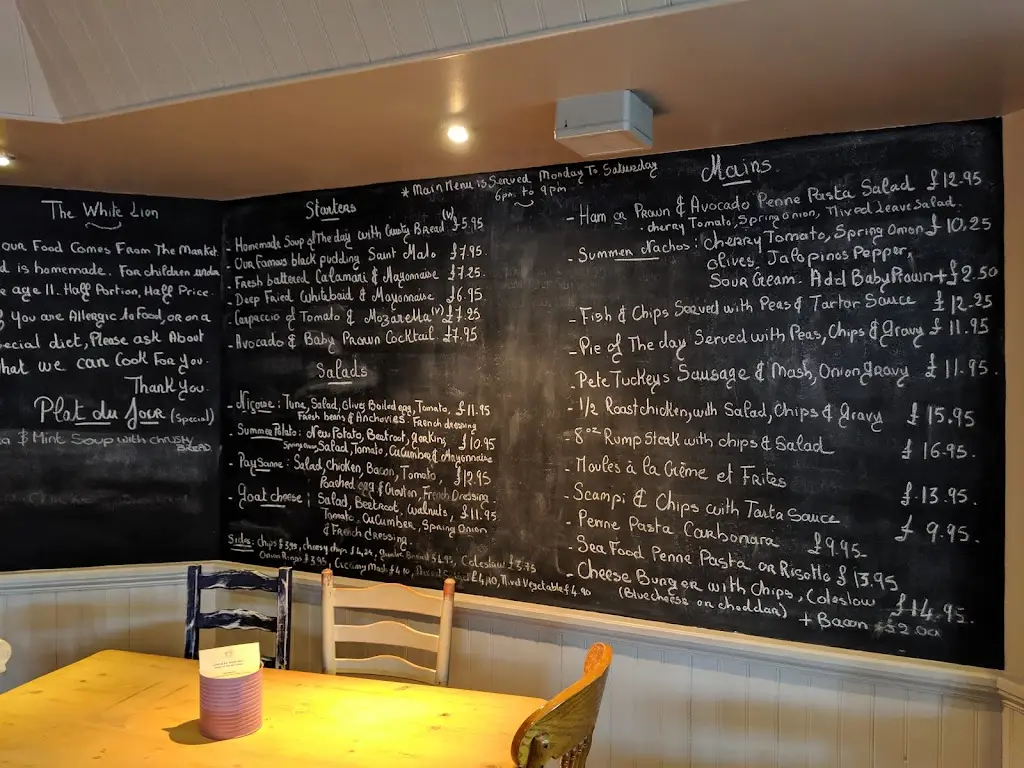 The White Lion
our Food Comes From The Market
is homemade. For children under
age 11. Half Portion, Half Price.
you are Allergic to Food, or on a
special diet, Please ask About
what we can Cook For You.
Thank you.
Plat du Jour (Special)
& Mint Soup with crusty
BREAD
* Main Menu is Served Monday To Saturday
6pm to 9pm
Starters
- Homemade Soup of The day with Crusty Bread (v) £5.95
- Our Famous black pudding Saint Malo £7.95
- Fresh battered Calamari & Mayonnaise £7.25
- Deep Fried Whitebaid & Mayonnaise £6.95
- Carpaccio of Tomato & Mozarella (v) £7.25
- Avocado & Baby Prawn Cocktail £7.95
Salads
- Niçoise : Tuna, Salad, Olives, Boiled egg, Tomato, £11.95
Fresh beans & Anchovies. French dressing
- Summer Potato : New Potato, Beetroot, gerkins, £10.95
Spring onion, Salad, Tomato, Cucumber & Mayonnaise
- Paysanne : Salad, Chicken, Bacon, Tomato, £12.95
Poached egg & Crouton, French Dressing.
- Goat cheese ; Salad, Beetroot, walnuts, £11.95
Tomato, Cucumber, Spring Onion
& French dressing.
Sides: chips £3.90, cheesy chips £4.25, Bread £4.95, Coleslaw £3.75
Onion Rings £3.95, Creamy Mash £4.10, £4.10, Mixed Vegetable £4.90
Mains
- Ham or Prawn & Avocado Penne Pasta Salad £12.95
. cherry Tomato, Spring onion, Mixed Leave Salad.
- Summer Nachos : Cherry Tomato, Spring Onion £10.25
Olives. Jalapinos Pepper,
Sour Cream. Add Baby Prawn +£2.50
- Fish & Chips Served with Peas & Tartar Sauce £12.25
- Pie of The day Served with Peas, Chips & gravy £11.95
- Pete Tuckeys Sausage & Mash, Onion gravy £11.95.
- 1/2 Roast chicken, with Salad, Chips & gravy £15.95
- 8oz Rump Steak with chips & Salad £16.95.
- Moules à la Crème et Frites £13.95.
- Scampi & Chips with Tarta Sauce £9.95.
- Penne Pasta Carbonara £9.95
- Sea Food Penne Pasta or Risotto £13.95
- Cheese Burger with Chips, Coleslaw £14.95.
(Blue cheese or cheddar) + Bacon £2.00